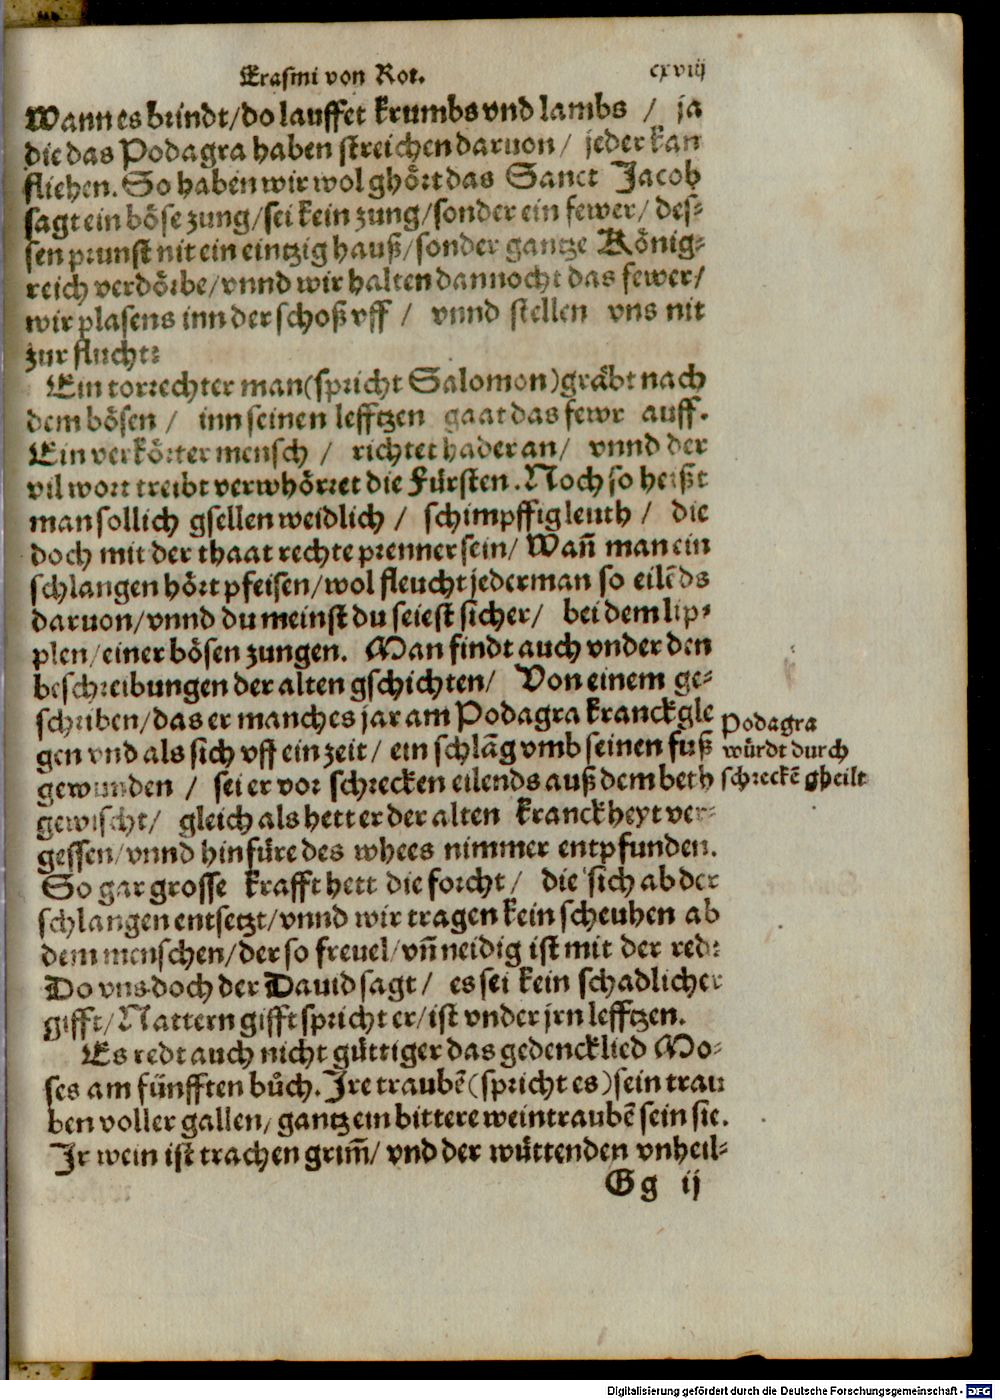 Erasmi von Rot. cxviij
Wann es brindt/do lauffet krumbs vnd lambs / ja
die das Podagra haben streichen daruon/ jeder kan
fliehen. So haben wir wol ghört das Sanct Jacob
sagt ein böse zung/sei kein zung/sonder ein fewer/ des-
sen prunst nit ein eintzig hauß/sonder gantze König-
reich verdörbe/vnnd wir halten dannocht das fewer/
wir plasens inn der schoß vff / vnnd stellen vns nit
zur flucht:
Ein torrechter man(spricht Salomon)gräbt nach
dem bösen / inn seinen lefftzen gaat das fewr auff.
Ein verkörter mensch / richtet hader an/ vnnd der
vil wort treibt verwhörret die Fürsten. Noch so heißt
man sollich gsellen weidlich / schimpffig leuth / die
doch mit der thaat rechte prenner sein/ Wañ man ein
schlangen hört pfeisen/wol fleucht jederman so eilēds
daruon/vnnd du meinst du seiest sicher/ bei dem lip-
plen/einer bösen zungen. Man findt auch vnder den
beschreibungen der alten gschichten/ Von einem ge-
schriben/das er manches jar am Podagra kranck gle
gen vnd als sich vff ein zeit/ ein schlāg vmb seinen fuß
gewunden / sei er vor schrecken eilends auß dem beth
gewischt/ gleich als hett er der alten kranckheyt ver-
gessen/vnnd hinfüre des whees nimmer entpfunden.
So gar grosse krafft hett die forcht/ die sich ab der
schlangen entsetzt/vnnd wir tragen kein scheuhen ab
dem menschen/der so freuel/vñ neidig ist mit der red:
Do vns doch der Dauid sagt/ es sei kein schadlicher
gifft/Nattern gifft spricht er/ist vnder jrn lefftzen.
Es redt auch nicht güttiger das gedencklied Mo-
ses am fünfften bůch. Jre traubē(spricht es)sein trau
ben voller gallen/gantz ein bittere weintraubē sein sie.
Jr wein ist trachen grim̄/ vnd der wüttenden vnheil-
Gg ij
Podagra
würdt durch
schreckē gheilt
Digitalisierung gefördert durch die Deutsche Forschungsgemeinschaft - DFG